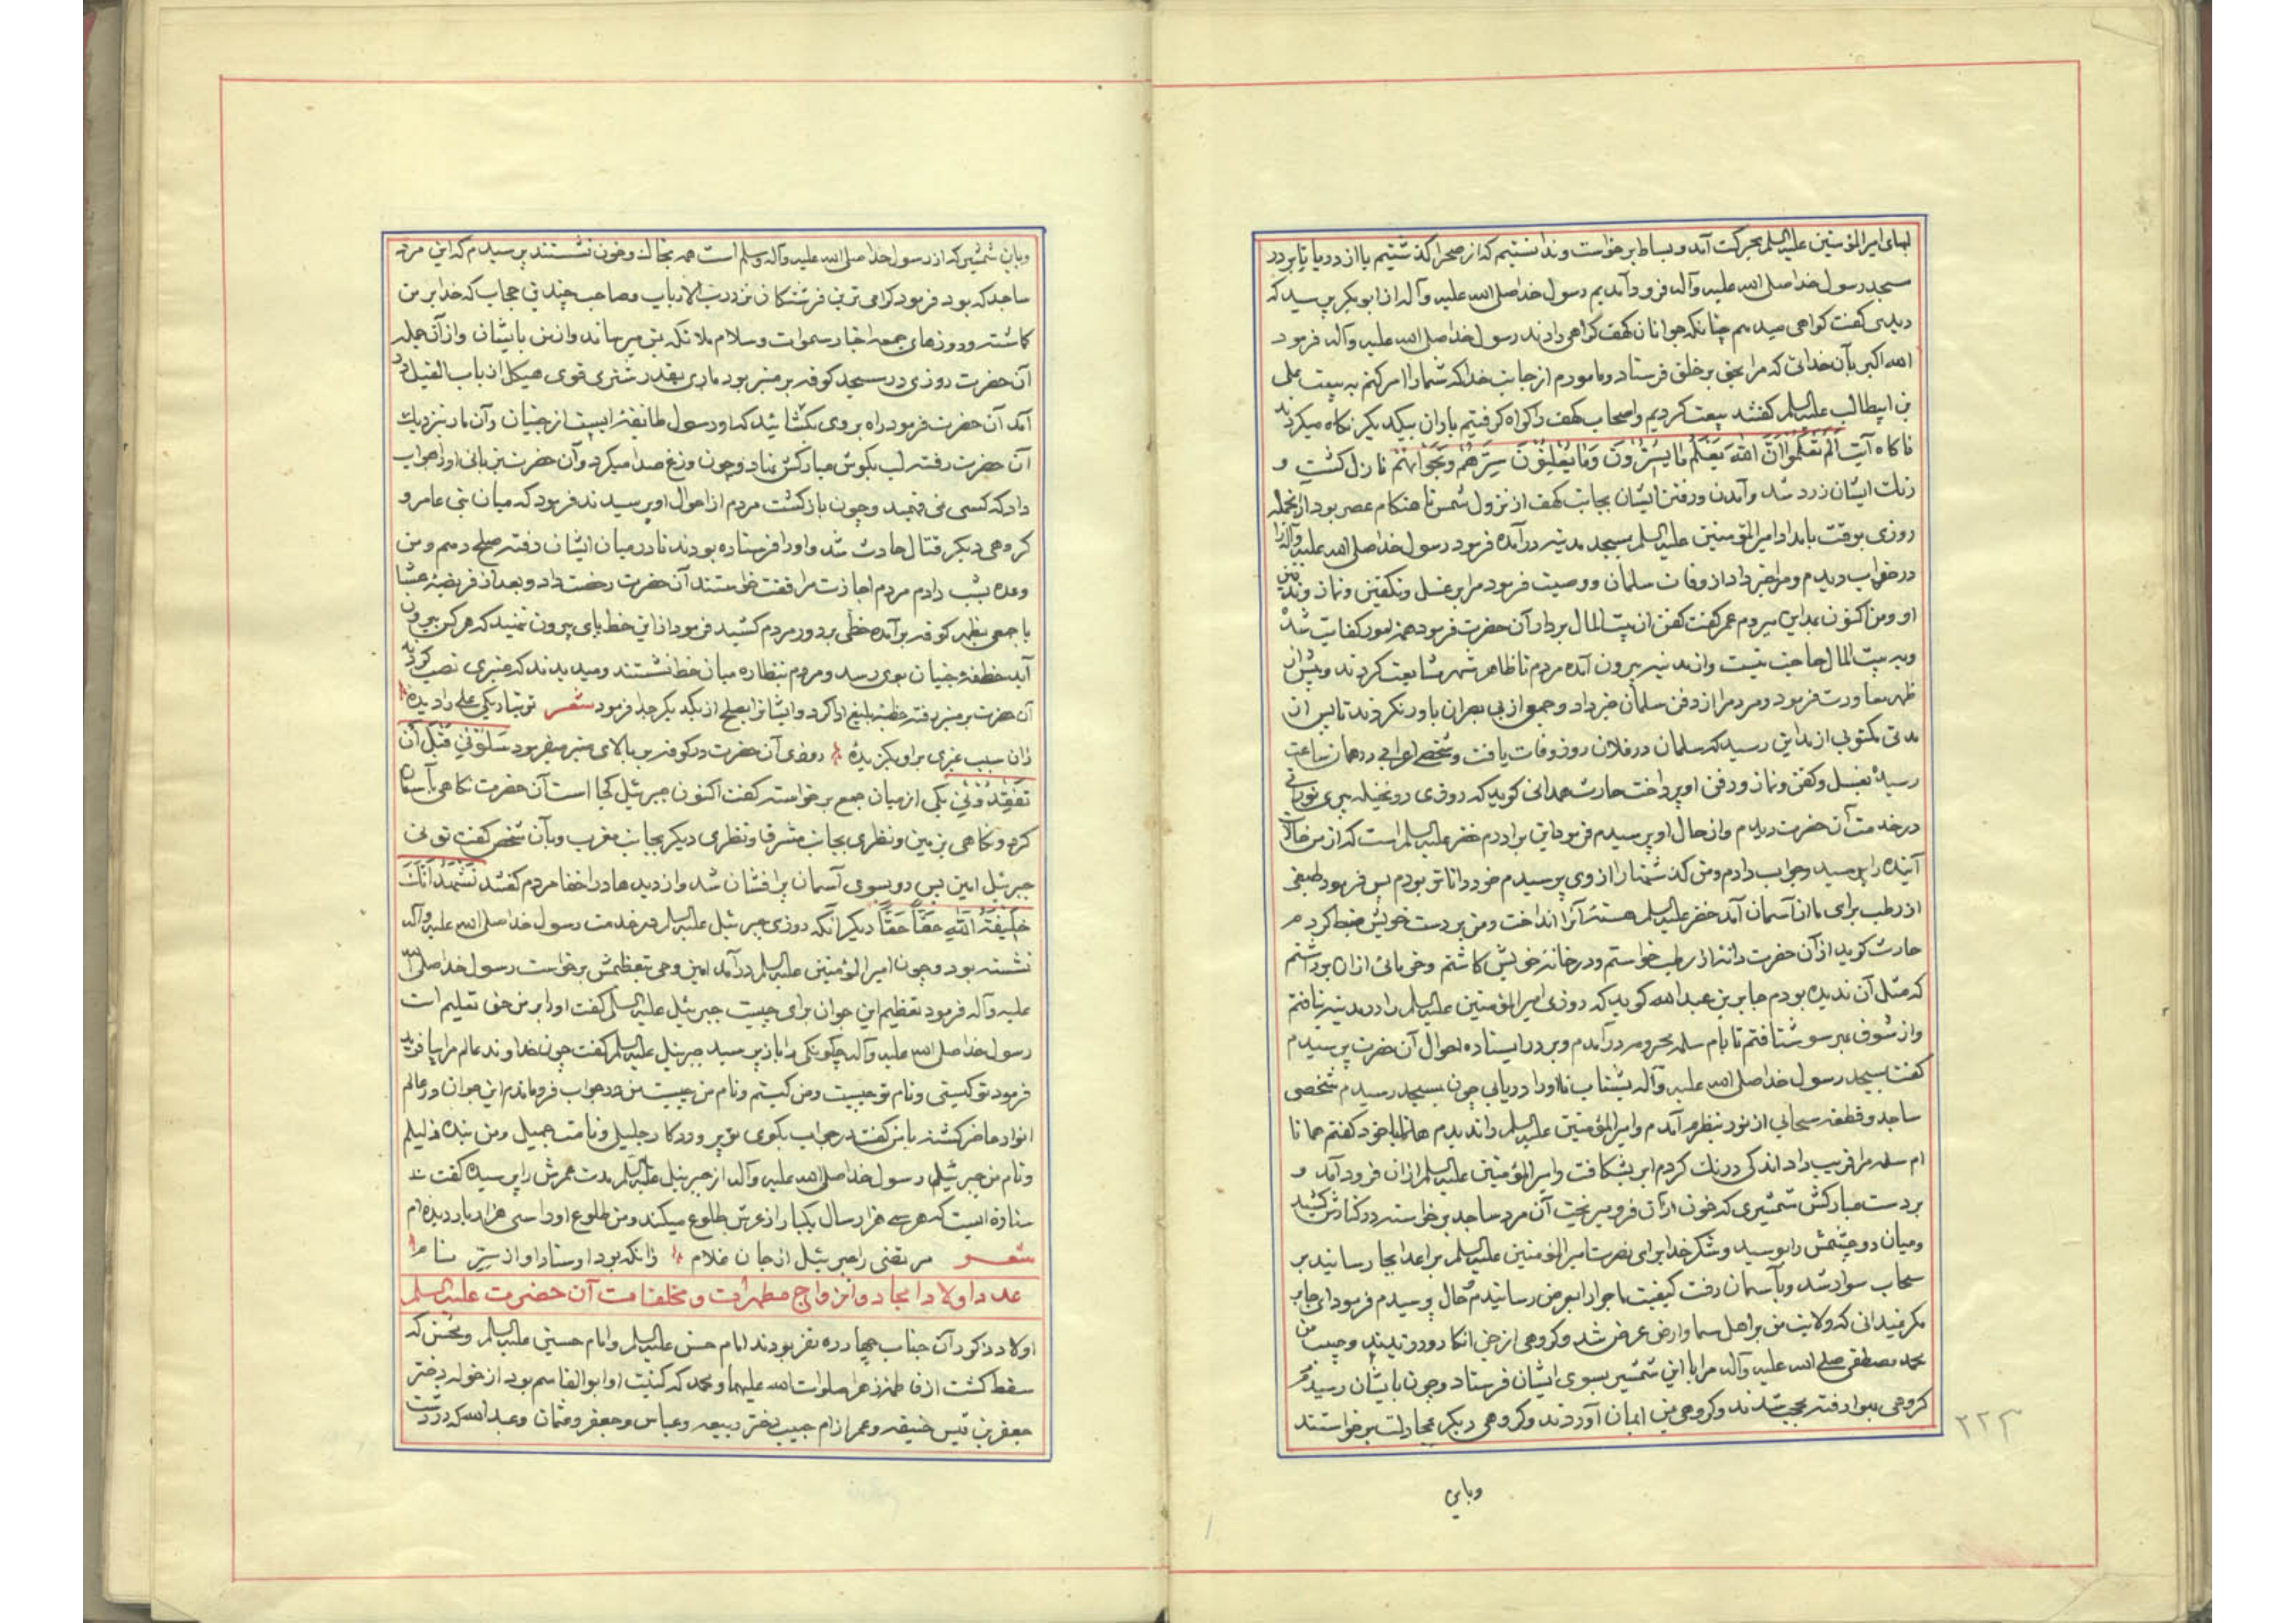 لبهای امیرالمؤمنین علیه‌السلم بحرکت آمد و بساط برخواست و ندانستیم که از صحرا گذشتیم یا از دریا تا بر در
مسجد رسول خدا صلی الله علیه وآله فرود آمدیم رسول خدا صلی الله علیه وآله از ابوبکر پرسید که
دیدی گفت گواهی میدهم چنانکه جوانان کهف گواهی دادند رسول خدا صلی الله علیه وآله فرمود
الله اکبر بآن خدائی که مرا بحق بر خلق فرستاد و مامورم از جانب خدا که شما را امر کنم به بیعت علی
بن ابیطالب علیه‌السلم گفتند بیعت کردیم و اصحاب کهف را گواه گرفتیم یاران بیکدیگر نگاه میکردند
ناگاه آیت الم تعلموا ان الله یعلم ما یسرون وما یعلنون سرهم ونجواهم نازل گشت و
رنگ ایشان زرد شد و آمدن و رفتن ایشان بجانب کهف از نزول شمس تا هنگام عصر بود ازانجمله
روزی بوقت بامداد امیرالمؤمنین علیه‌السلم بمسجد مدینه درآمده فرمود رسول خدا صلی الله علیه وآله را
در خواب دیدم و مرا خبر داد از وفات سلمان و وصیت فرمود مرا بر غسل و تکفین و نماز و تدفین
او و من اکنون بمداین میروم عمر گفت کفن از بیت المال بردار آن حضرت فرمود
و به بیت المال حاجت نیست و از مدینه بیرون آمده مردم تا ظاهر شهر مشایعت کردند و پیش از
ظهر معاودت فرمود و مردم را از دفن سلمان خبر داد و جمع از بی بصران باور نکردند تا پس از
مدتی مکتوبی از مداین رسید که سلمان در فلان روز وفات یافت و شخصی اعرابی در همان ساعت
رسید بغسل و کفن و نماز و دفن او پرداخت حارث همدانی گوید که روزی در نخیله پیری نورانی
در خدمت آن حضرت دیدم و از حال او پرسیدم فرمود این برادرم خضر علیه‌السلم است که از من حال
آینده را پرسید و جواب دادم و من گذشتها را از وی پرسیدم خود داناتر بودم پس فرمود طبقی
از رطب برای ما از آسمان آمد خضر علیه‌السلم هسته آنرا انداخت و من بر دست خویش ضبط کردم
حارث گوید از آن حضرت دانه از رطب خواستم و در خانه خویش کاشتم و خرمائی ازان برداشتم
که مثل آن ندیده بودم جابر بن عبدالله گوید که روزی امیرالمؤمنین علیه‌السلم را در مدینه نیافتم
و از شوق هر سو شتافتم تا بام سلمه محروم درآمدم و بر در ایستاده احوال آن حضرت پرسیدم
گفت بمسجد رسول خدا صلی الله علیه وآله بشتاب تا او را دریابی چون بمسجد رسیدم شخصی
ساجد و قطعه سحابی از نور بنظرم آمد و امیرالمؤمنین علیه‌السلم را ندیدم با خود گفتم همانا
ام سلمه مرا فریب داد اندکی درنگ کردم ابر بشکافت و امیرالمؤمنین علیه‌السلم ازان فرود آمد و
بر دست مبارکش شمشیری که خون ازان فرو میریخت آن مرد ساجد برخواسته در کنارش کشید
و میان دو چشمش را بوسید و شکر خدا برای نصرت امیرالمؤمنین علیه‌السلم بر اعدا بجا رسانید بر
سحاب سوار شد و بآسمان رفت کیفیت ماجرا را بعرض رسانیدم و حال پرسیدم فرمود ای جابر
مگر نمیدانی که ولایت من بر اهل سما و ارض عرض شد و گروهی از جن انکار ورزیدند و حبیب من
محمد مصطفی صلی الله علیه وآله مرا با این شمشیر بسوی ایشان فرستاد و چون بایشان رسیدم
گروهی بهوا رفته محجب شدند و گروهی بمن ایمان آوردند و گروهی دیگر بمجادلت برخواستند
۲۲۳
وباین
وباین شمشیر که از رسول خدا صلی الله علیه وآله وسلم است همه بخاک و خون نشستند پرسیدم که این مرد
ساجد که بود فرمود گرامی ترین فرشتگان نزد رب الارباب و صاحب چندین حجاب که خدا بر من
گماشته و روزهای جمعه اخبار سموات و سلام ملائکه بمن میرساند و از من بایشان و ازان جمله
آن حضرت روزی در مسجد کوفه بر منبر بود ماری بقدر شتری قوی هیکل از باب الفیل در
آمد آن حضرت فرمود راه بروی بگشائید که او رسول طائفه ایست از جنیان و آن مار نزدیک
آن حضرت رفته لب بگوش مبارکش نهاد و چون وزغ صدا میکرد و آن حضرت بزبانی او را جواب
داد که کسی نمی فهمید و چون بازگشت مردم از احوال او پرسیدند فرمود که میان بنی عامر و
گروهی دیگر قتال حادث شد و او را فرستاده بودند تا در میان ایشان رفته صلح دهم و من
وعده بشب دادم مردم اجازت مرافقت خواستند آن حضرت رخصت داد و بعد از فریضه عشا
با جمعی بظهر کوفه برآمده خطی بر دور مردم کشید فرمود ازاین خط پای بیرون ننهید که هر کس بیرون
آید خطفه جنیان بوی رسد و مردم بنظاره میان خط نشستند و میدیدند که منبری نصب کردند
آن حضرت بر منبر رفته خطبه بلیغ ادا کرد و ایشانرا بصلح از یکدیگر جدا فرمود شعر تو بتاریکی علی را دیده
زان سبب غیری برو بگزیده روزی آن حضرت در کوفه بر بالای منبر میفرمود سلونی قبل ان
تفقدونی یکی از میان جمع برخواسته گفت اکنون جبرئیل کجا است آن حضرت نگاهی بآسمان
کرد و نگاهی بزمین و نظری بجانب مشرق و نظری دیگر بجانب مغرب و بآن شخص گفت توئی
جبرئیل امین پس رو بسوی آسمان پرافشان شد و از دیدها در اخفا مردم گفتند نشهد انک
خلیفة الله حقاً حقاً دیگر آنکه روزی جبرئیل علیه‌السلم در خدمت رسول خدا صلی الله علیه وآله
نشسته بود و چون امیرالمؤمنین علیه‌السلم درآمد امین وحی بتعظیمش برخواست رسول خدا صلی الله
علیه وآله فرمود تعظیم این جوان برای چیست جبرئیل علیه‌السلم گفت او را بر من حق تعلیم است
رسول خدا صلی الله علیه وآله چگونگی را باز پرسید جبرئیل علیه‌السلم گفت چون خداوند عالم مرا بیافرید
فرمود تو کیستی و نام تو چیست و من کیستم و نام من چیست من در جواب فروماندم این جوان در عالم
انوار حاضر گشته با من گفت در جواب بگوی تو پروردگار جلیل و نامت جمیل و من بنده ذلیلم
و نام من جبرئیلم رسول خدا صلی الله علیه وآله از جبرئیل علیه‌السلم مدت عمرش را پرسید گفت
ستاره ایست که هر سی هزار سال یکبار از عرش طلوع میکند و من طلوع او را سی هزار بار دیده ام
شعر مرتضی را جبرئیل از جان غلام زانکه بود اوستاد او از سر نام
عدد اولاد امجاد و ازواج مطهرات و مخلفات آن حضرت علیه‌السلم
اولاد ذکور آن جناب چهارده نفر بودند امام حسن علیه‌السلم و امام حسین علیه‌السلم و محسن که
سقط گشت از فاطمه زهرا صلوات الله علیهما و محمد که کنیت او ابوالقاسم بود از خوله دختر
جعفر بن قیس حنیفه و عمر از ام حبیب دختر ربیعه و عباس و جعفر و عثمان و عبدالله که در دشت